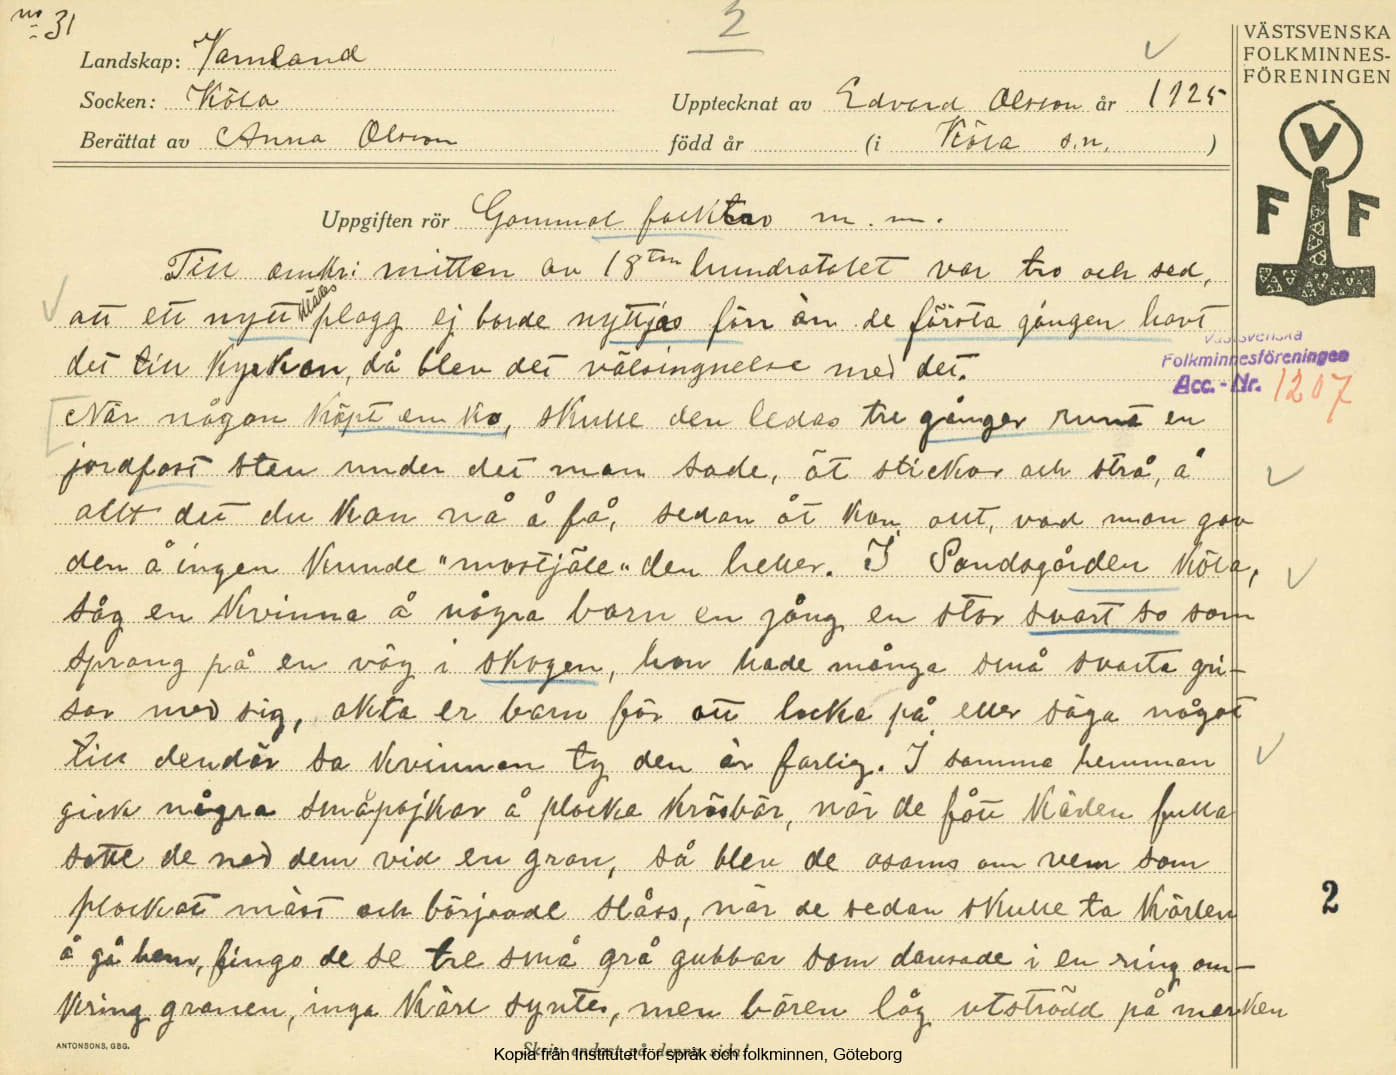 no 31
2
VÄSTSVENSKA
FOLKMINNES-
FÖRENINGEN
Landskap: Värmland
Socken: Köla
Upptecknat av Edvard Olsson år 1925
Berättat av Anna Olsson
född år (i Köla s.n. )
V
F F
Uppgiften rör Gammal folktro m.m.
Till omkr: mitten av 18ton hundratalet var tro och sed,
att ett nytt klädes plagg ej borde nyttjas förr än de första gången havt
det till kyrkan, då blev det välsingnelse med det.
Västsvenska
Folkminnesföreningen
Acc.-Nr. 1207
När någon köpt em ko, skulle den ledas tre gånger runt en
jordfast sten under det man sade, öt stickor och strå, å
allt det du kan nå å få, sedan åt kon allt, vad man gav
den å ingen kunde "mostjäle" den heller. I Sandsgården Köla,
såg en kvinna å några barn en gång en stor svart so som
sprang på en väg i skogen, hon hade många små svarta gri-
sar med sig, akta er barn för att locka på eller säga något
till dendär sa kvinnan ty den är farlig. I samma hemman
gick några småpojkar å plocka krösbär, när de fått kärlen fulla
satte de ned dem vid en gran, så blev de osams om vem som
plockat mäst och började slåss, när de sedan skulle ta kärlen
å gå hem, fingo de se tre små grå gubbar som dansade i en ring om-
kring granen, inga kärl syntes, men bären låg utströdd på marken
2
ANTONSONS, GBG.
Skriv endast på denna sida!
Kopia från Institutet för språk och folkminnen, Göteborg